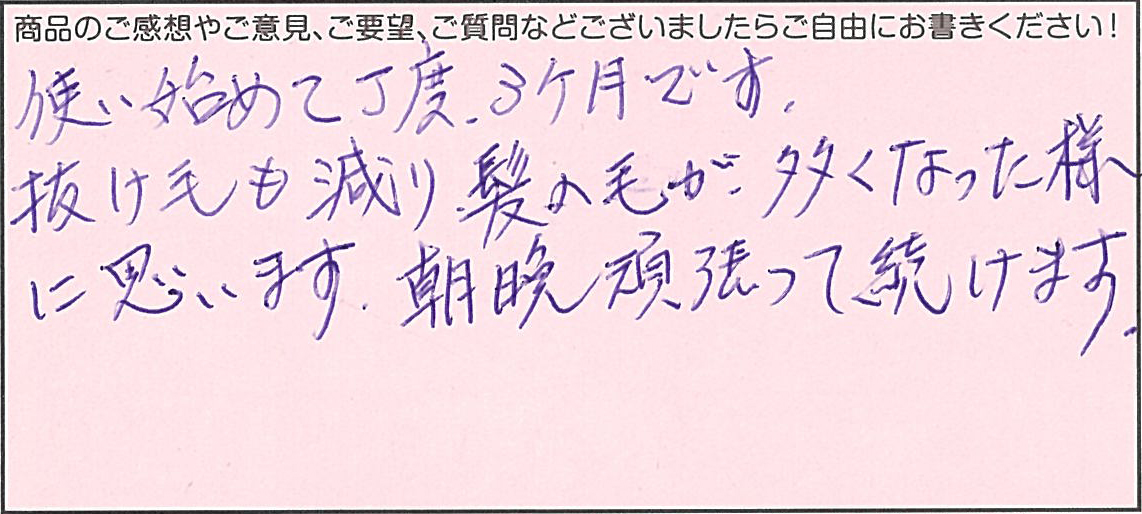 商品のご感想やご意見、ご要望、ご質問などございましたらご自由にお書きください！
使い始めて丁度、3ケ月です。
抜け毛も減り髪の毛が、多くなった様
に思います。朝晩頑張って続けます。